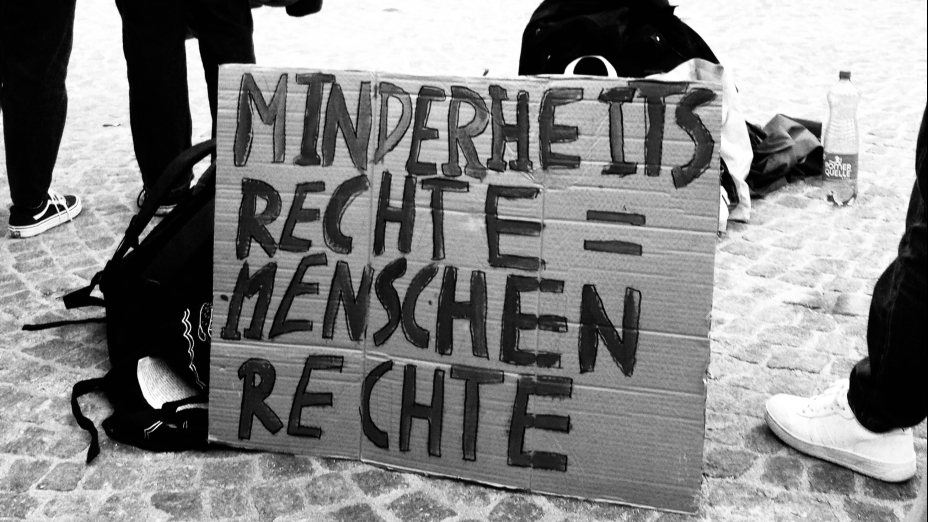 MINDERHEITS
RECHTE =
MENSCHEN
RECHTE
RÖMER
QUELLE